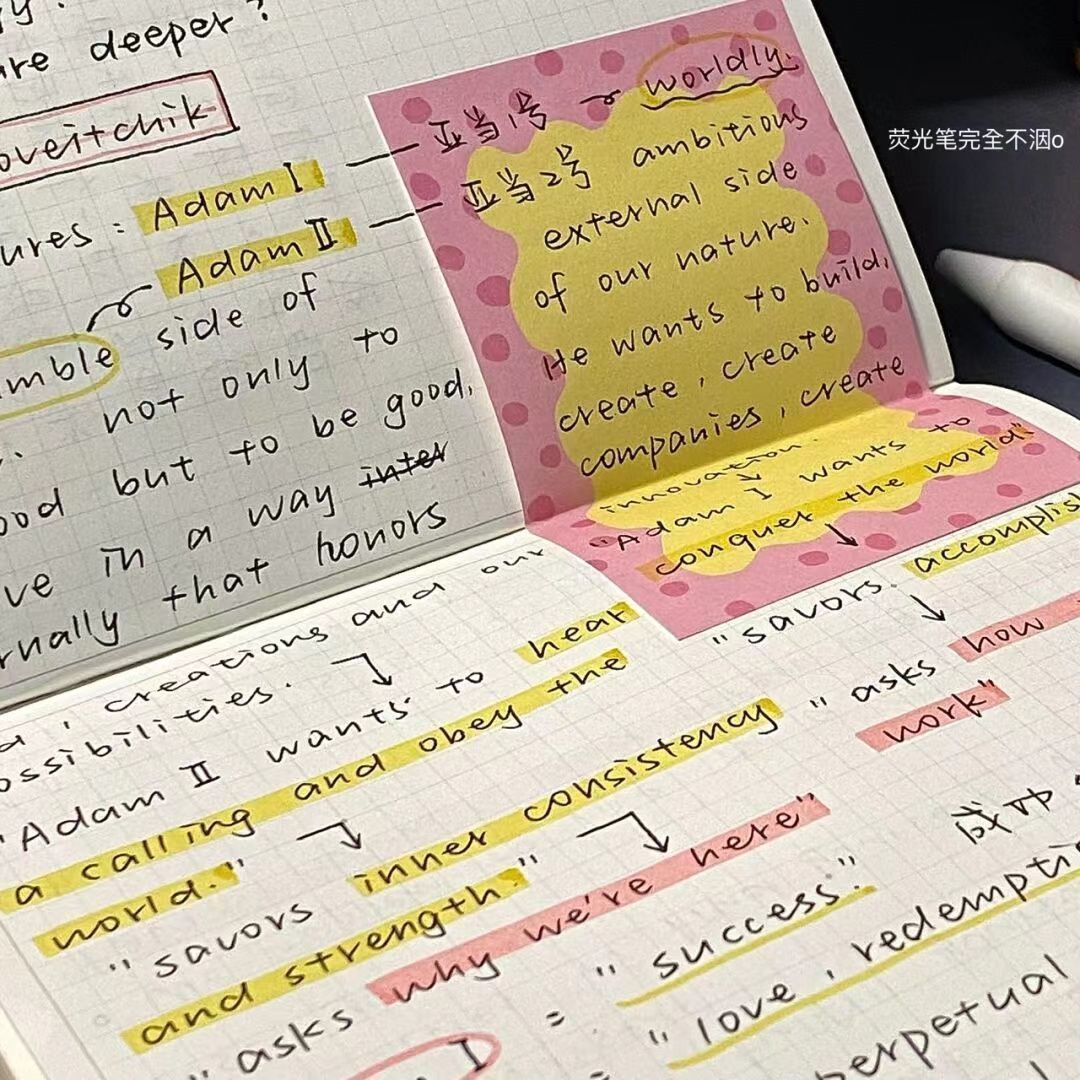 are deeper?
oveitchik
ures: Adam I
Adam II
umble side of
not only to
ood but to be good,
ve in a way inter
rnally that honors
creations and our
ossibilities.
"Adam II wants to hear
a calling and obey the
world."
"savors inner consistency
and strength."
"asks why we're here"
亚当1号 worldly.
亚当2号 ambitions
external side
of our nature.
He wants to build,
create, create
companies, create
innovation.
"Adam I wants to
conquer the world"
"savors accomplis
"asks how
work"
I = "success".
= "love, redempti
perpetual
荧光笔完全不洇o